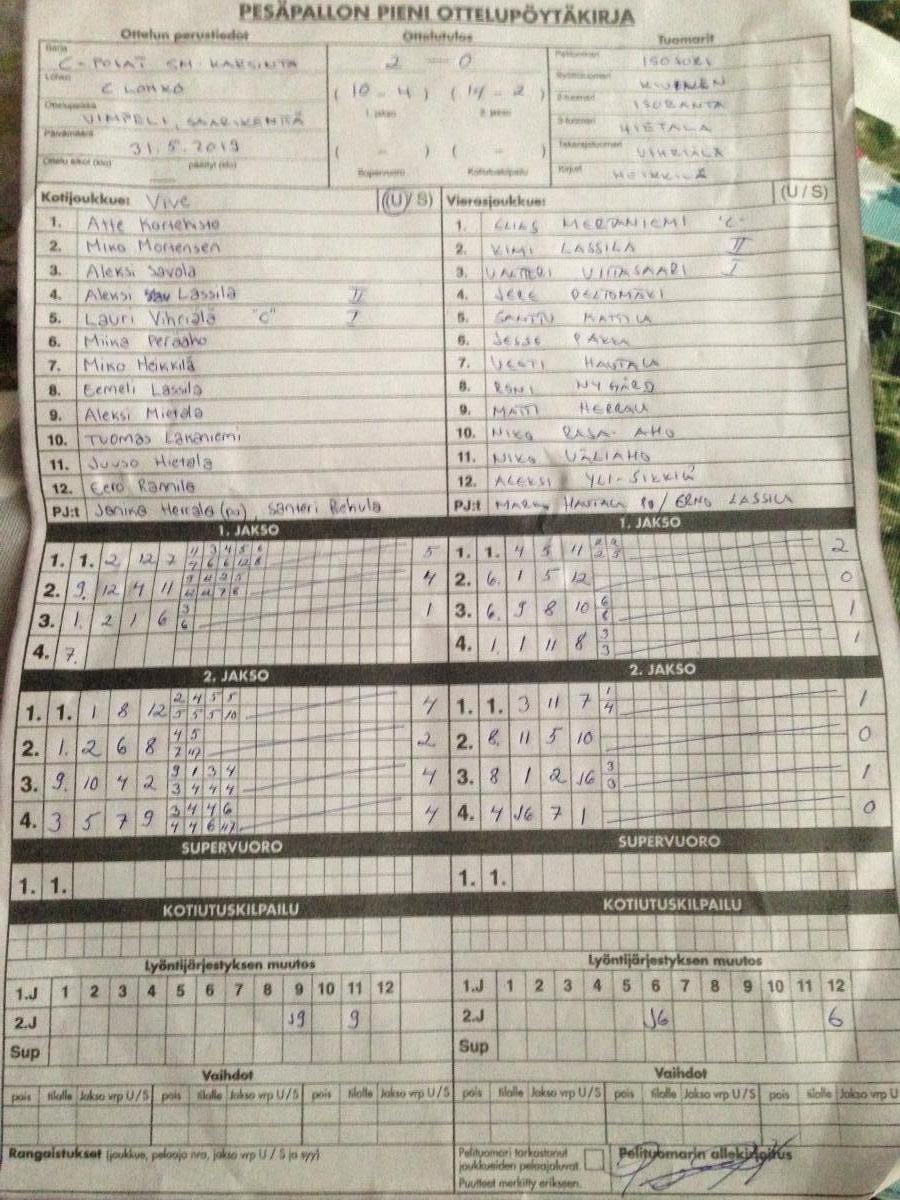 PESÄPALLON PIENI OTTELUPÖYTÄKIRJA
Ottelun perustiedot Ottelutulos Tuomarit
Sarja C-POJAT SM-KARSINTA 2 - 0 Pelituomari ISOSORI
Lohko C LOHKO (10 - 4) (14 - 2) Syöttötuomari KIVENEN
Ottelupaikka VIMPELI, SAARIKENTÄ 1. jakso 2. jakso 2-tuomari ISORANTA
Päivämäärä 31.5.2019 3-tuomari HIETALA
Ottelu alkoi (klo) päättyi (klo) ( - ) ( - ) Takarajatuomari VIHRIÄLÄ
Supervuoro Kotiutuskilpailu Kirjuri HEIKKILÄ
Kotijoukkue: Vive (U/S) Vierasjoukkue: (U/S)
1. Atte Kortehisto 1. ELIAS MERTANIEMI "C"
2. Miko Mortensen 2. KIMI LASSILA II
3. Aleksi Savola 3. VALTTERI VIITASAARI I
4. Aleksi Lassila II 4. JERE PELTOMÄKI
5. Lauri Vihriälä "C" I 5. SANTTU MATTILA
6. Miika Peraaho 6. JESSE
7. Miko Heikkilä 7. VESTI HAUTALA
8. Eemeli Lassila 8. RONI NYGÅRD
9. Aleksi Mietala 9. MATTI HERRALA
10. Tuomas Lakaniemi 10. NIKO RASA-AHO
11. Juuso Hietala 11. NIKO VÄLIAHO
12. Eero Rannila 12. ALEKSI YLI-SIKKILÄ
PJ:t Janika Herrala (pv) Santeri Rehula PJ:t MARKO HAUTALA / ERNO LASSILA
1. JAKSO 1. JAKSO
1. 1. 2 12 7 11 3 4 5 6 5 1. 1. 4 5 11 2 2 2
4 6 6 12 8 2 5
2. 9. 12 4 11 4 2. 6. 1 5 12 0
3. 1. 2 1 6 3 1 3. 6. 9 8 10 6 1
6 8
4. 7. 4. 1. 1 11 8 3 1
3
2. JAKSO 2. JAKSO
1. 1. 1 8 12 2 4 5 5 4 1. 1. 3 11 7 1 1
5 5 5 10 4
2. 1. 2 6 8 4 5 2 2. 8. 11 5 10 0
3. 9. 10 4 2 9 1 3 4 4 3. 8 1 2 J6 3 1
3 4 4 4 3
4. 3 5 7 9 3 4 4 6 4 4. 4 J6 7 1 0
SUPERVUORO SUPERVUORO
1. 1. 1. 1.
KOTIUTUSKILPAILU KOTIUTUSKILPAILU
Lyöntijärjestyksen muutos Lyöntijärjestyksen muutos
1.J 1 2 3 4 5 6 7 8 9 10 11 12 1.J 1 2 3 4 5 6 7 8 9 10 11 12
2.J J9 9 2.J J6 6
Sup Sup
Vaihdot Vaihdot
pois tilalle Jakso vrp U/S pois tilalle Jakso vrp U/S pois tilalle Jakso vrp U/S pois tilalle Jakso vrp U/S pois tilalle Jakso vrp U/S pois tilalle Jakso vrp U
Rangaistukset (joukkue, pelaaja nro, jakso vrp U / S ja syy) Pelituomari tarkastanut Pelituomarin allekirjoitus
joukkueiden pelaajaluvat.
Puutteet merkitty erikseen.